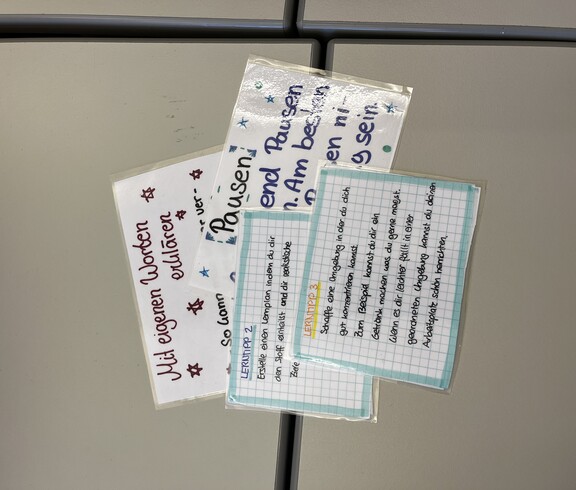 Mit eigenen Worten
erklären
er ver-
So kann
Pausen
end Pausen
n. Am besten
en ni-
g sein.
LERNTIPP 2
Erstelle einen Lernplan indem du dir
den Stoff einteilst und dir realistische
Ziele
LERNTIPP 3
Schaffe eine Umgebung in der du dich
gut konzentrieren kannst.
Zum Beispiel kannst du dir ein
Getränk machen was du gerne magst.
Wenn es dir leichter fällt in einer
geordneten Umgebung kannst du deinen
Arbeitsplatz schön herrichten.